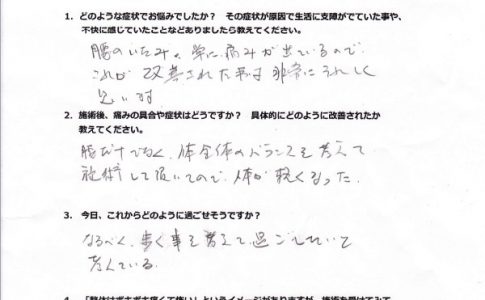 1. どのような症状でお悩みでしたか？ その症状が原因で生活に支障がでていた事や、
不快に感じていたことなどありましたら教えてください。
腰のいたみ。常に痛みが出ているので
これが改善された事は非常にうれしく
思います
2. 施術後、痛みの具合や症状はどうですか？ 具体的にどのように改善されたか
教えてください。
腰だけでなく、体全体のバランスを考えて
施術して頂いてので、体が軽くなった。
3. 今日、これからどのように過ごせそうですか？
なるべく、歩く事を考えて過ごしたいと
考えている。
4. 「整体はボキボキ痛くて怖い」というイメージがありますが、施術を受けてみて